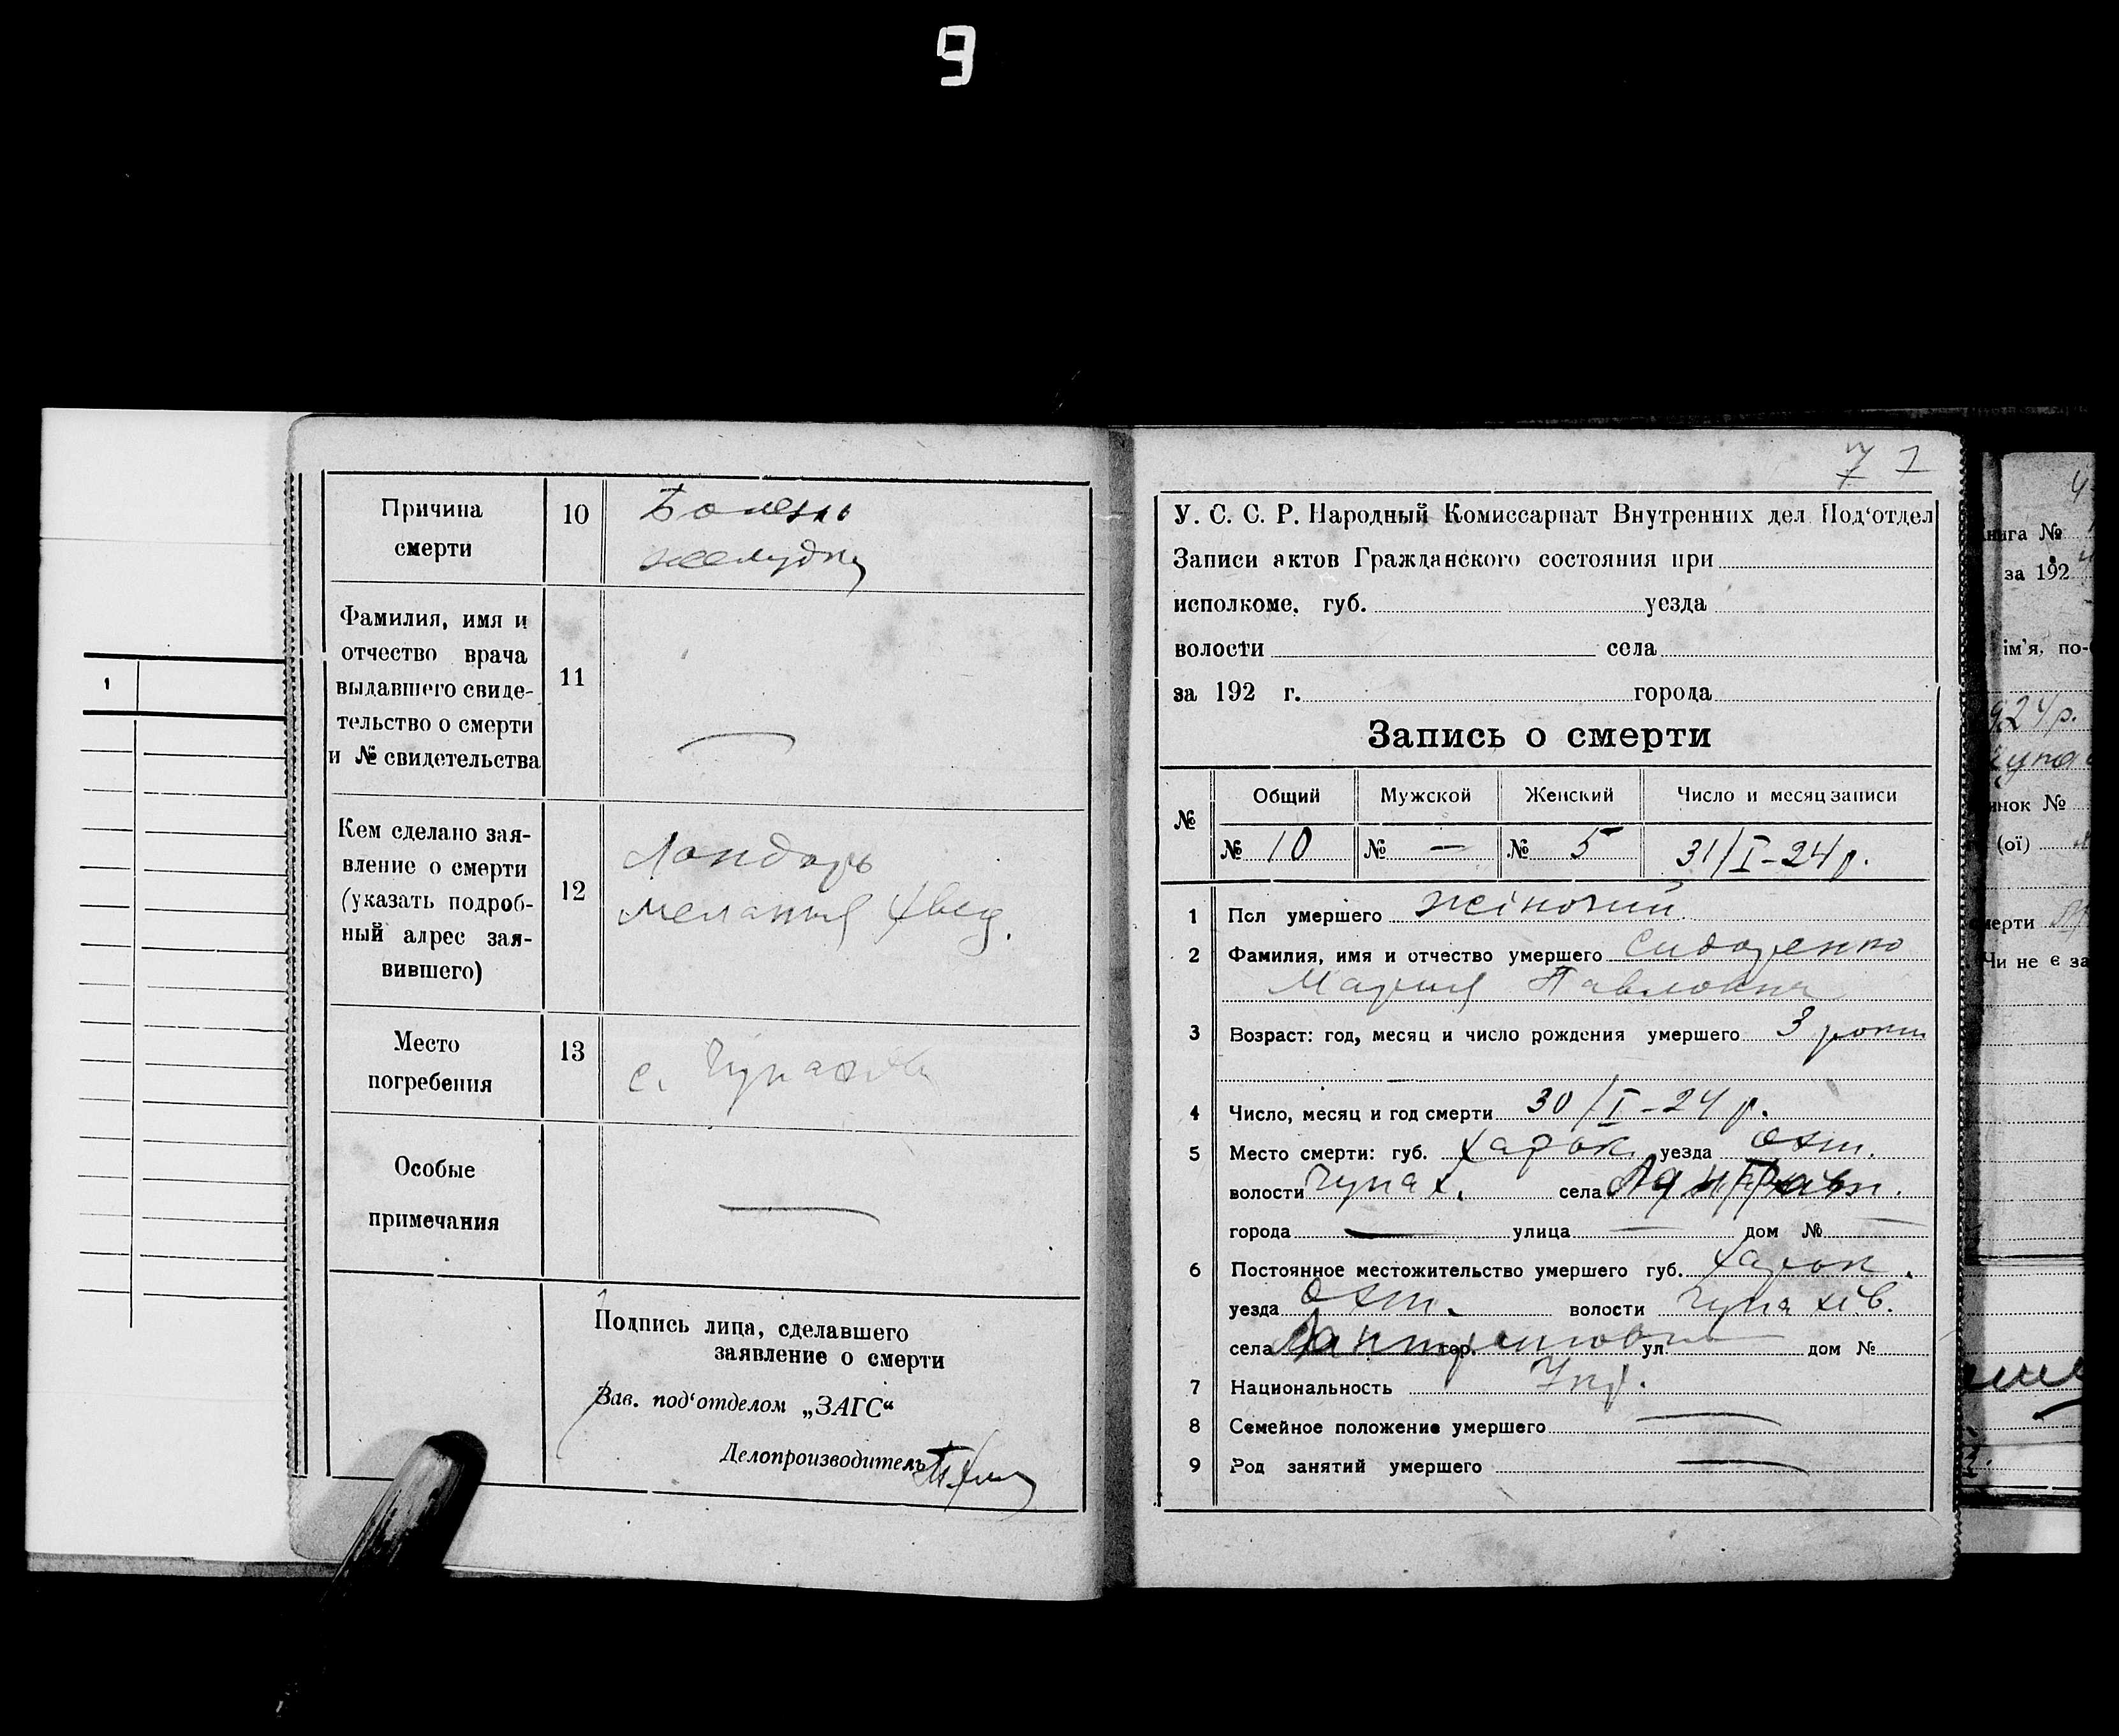 9
1
Причина
смерти
10
Болезнь
желудку
Фамилия, имя и
отчество врача
выдавшего свиде-
тельство о смерти
и № свидетельства
11
—
Кем сделано зая-
вление о смерти
(указать подроб-
ный адрес зая-
вившего)
12
Лондарь
Мелания Хвед.
Место
погребения
13
с. Чупахівки
Особые
примечания
—
Подпись лица, сделавшего
заявление о смерти
Зав. под‘отделом „ЗАГС“
Делопроизводитель
7 7
У. С. С. Р. Народный Комиссариат Внутренних дел Под‘отдел
Записи актов Гражданского состояния при
исполкоме, губ. уезда
волости села
за 192 г. города
Запись о смерти
№ Общий Мужской Женский Число и месяц записи
№ 10 № — № 5 31/I-24 р.
1 Пол умершего жіночий
2 Фамилия, имя и отчество умершего Сидоренко
Мария Павловна
3 Возраст: год, месяц и число рождения умершего 3 роки
4 Число, месяц и год смерти 30/I-24 р.
5 Место смерти: губ. Харьк. уезда Охт.
волости Чупах. села
города — улица — дом № —
6 Постоянное местожительство умершего губ. Харьк.
уезда Охт. волости Чупахів.
села гор. ул. дом №
7 Национальность Укр.
8 Семейное положение умершего —
9 Род занятий умершего —
книга №
за 192
ім'я, по-
924 р.
Чупа
инок №
(ої)
мерти
Чи не є за